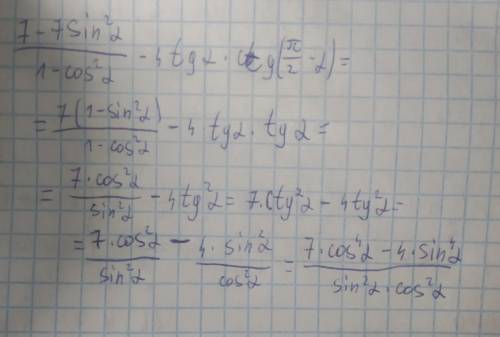 (7 - 7sin²α)/(1 - cos²α) - 4 tg α · ctg(π/2 - α) =
= 7(1 - sin²α)/(1 - cos²α) - 4 tg α · tg α =
= 7 · cos²α/sin²α - 4tg²α = 7 · ctg²α - 4tg²α =
= 7 · cos²α/sin²α - 4 · sin²α/cos²α = (7 · cos⁴α - 4 · sin⁴α)/(sin²α · cos²α)